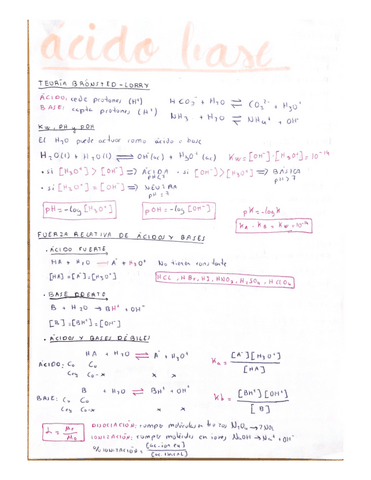 ácido base
TEORÍA BRÖNSTED-LOWRY
ÁCIDO: cede protones (H⁺)
HCO₃⁻ + H₂O ⇌ CO₃²⁻ + H₃O⁺
BASE: capta protones (H⁺)
NH₃ + H₂O ⇌ NH₄⁺ + OH⁻
Kw, pH y pOH
El H₂O puede actuar como ácido o base
H₂O(l) + H₂O(l) ⇌ OH⁻(ac) + H₃O⁺(ac) Kw = [OH⁻]·[H₃O⁺] = 10⁻¹⁴
• si [H₃O⁺] > [OH⁻] ⇒ ÁCIDA pH<7 - si [OH⁻] > [H₃O⁺] ⇒ BÁSICA pH>7
• si [H₃O⁺] = [OH⁻] ⇒ NEUTRA pH=7
pH = -log[H₃O⁺] pOH = -log[OH⁻] pK = -log K
Ka · Kb = Kw = 10⁻¹⁴
FUERZA RELATIVA DE ÁCIDOS Y BASES
• ÁCIDO FUERTE
HA + H₂O → A⁻ + H₃O⁺ No tienen constante
[HA] = [A⁻] = [H₃O⁺] HCl, HBr, HI, HNO₃, H₂SO₄, HClO₄
• BASE
B + H₂O → BH⁺ + OH⁻
[B] = [BH⁺] = [OH⁻]
• ÁCIDOS Y BASES DÉBILES
HA + H₂O ⇌ A⁻ + H₃O⁺ Ka = [A⁻][H₃O⁺] / [HA]
ÁCIDO: C₀ C₀
Ceq C₀-x x x
B + H₂O ⇌ BH⁺ + OH⁻ Kb = [BH⁺][OH⁻] / [B]
BASE: C₀ C₀
Ceq C₀-x x x
DISOCIACIÓN: rompo moléculas N₂O₄ → 2NO₂
IONIZACIÓN: rompo moléculas en iones NaOH → Na⁺ + OH⁻
% IONIZACIÓN =